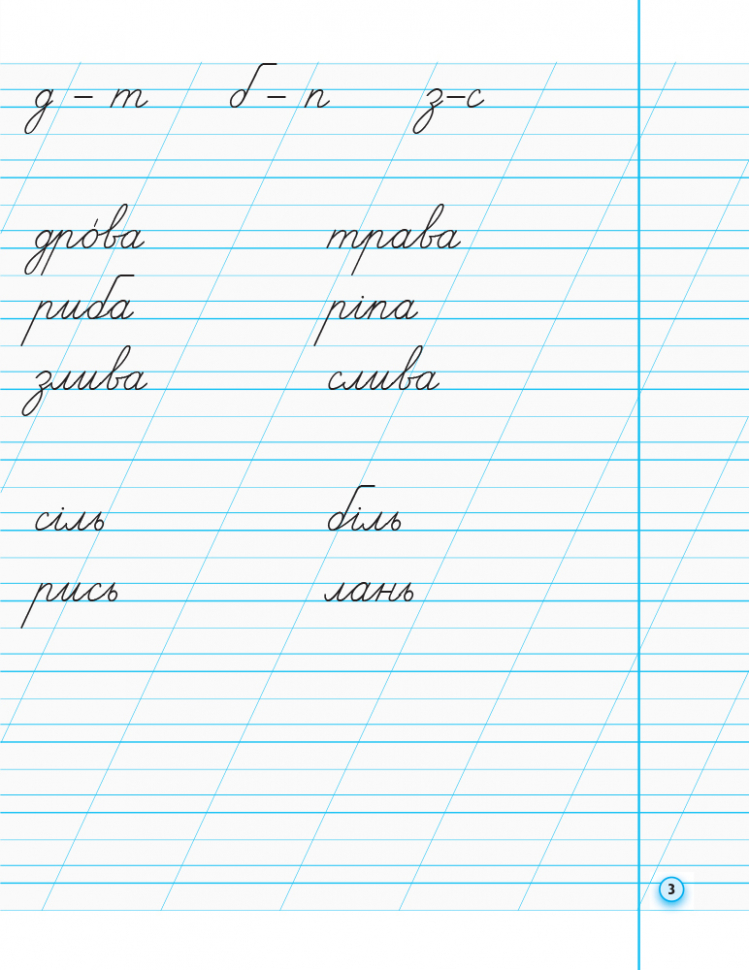 д – т б – п з–с
дро́ва трава
риба ріпа
злива слива
сіль біль
рись лань
3